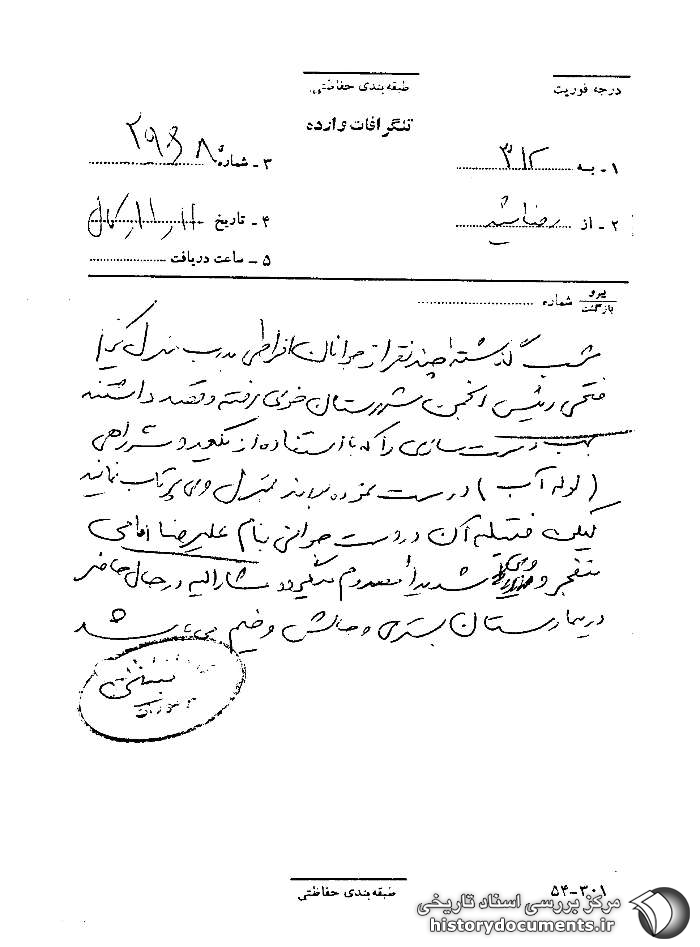 درجه فوریت
طبقه‌بندی حفاظتی
تلگرافات وارده
۱ - به ۳۱۲
۳ - شماره ۲۹۶۸
۲ - از رضائیه
۴ - تاریخ
۵ - ساعت دریافت
پیرو
بازگشت
شماره
شب گذشته چند نفر از جوانان افراطی بدرب منزل
فتحی رئیس انجمن شهرستان خوی رفته و قصد داشتند
بمب دست سازی را که با استفاده از و سه راهی
(لوله آب) درست نموده بودند بمنزل وی پرتاب نمایند
لیکن فتیله آن در دست جوانی بنام علیرضا امامی
منفجر و وی شدیداً مصدوم میگردد مشارالیه در حال حاضر
در بیمارستان بستری و حالش وخیم می باشد
طبقه‌بندی حفاظتی
۵۴-۳۰۱
مرکز بررسی اسناد تاریخی
historydocuments.ir